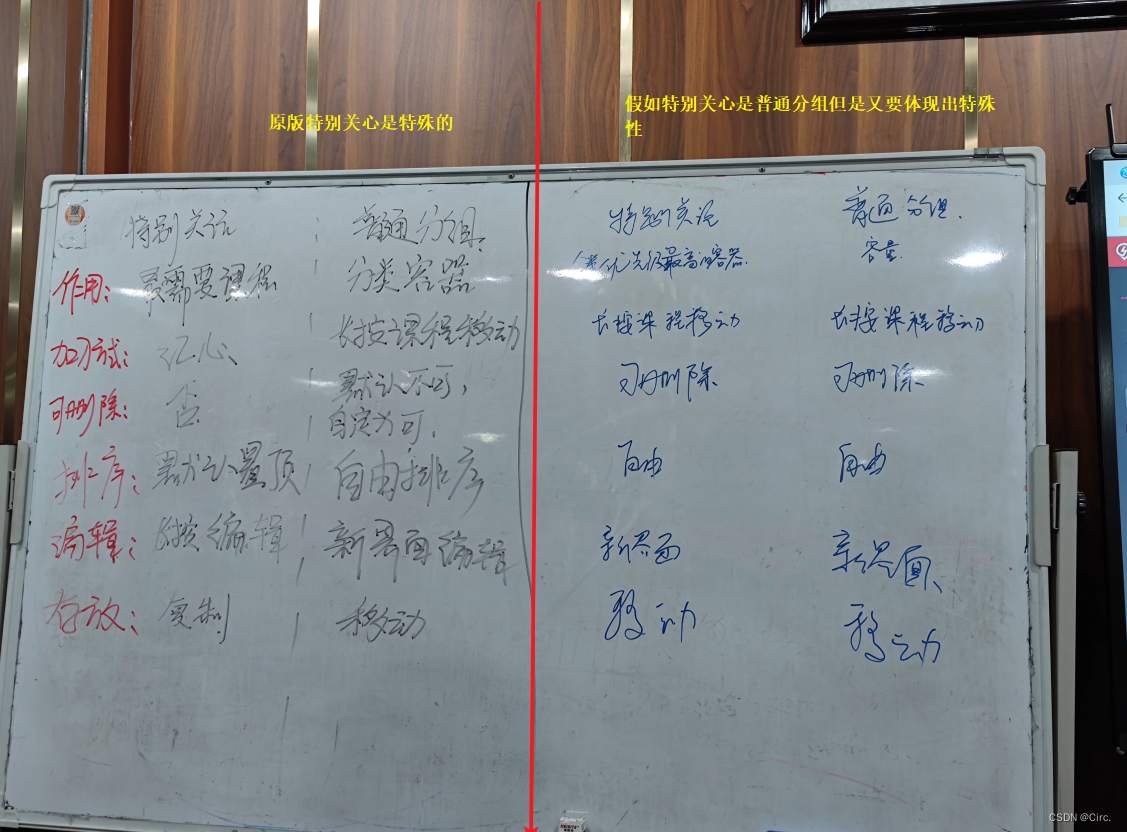 原版特别关心是特殊的
假如特别关心是普通分组但是又要体现出特殊
性
特别关注 普通分组
作用: 最需要课程 分类容器
加方式: 红心 长按课程移动
可删除: 否 默认不可,
自定义可.
排序: 默认置顶 自由排序
编辑: 长按编辑 新界面编辑
存放: 复制 移动
特别关注 普通分组.
优先级最高的容器. 容量
长按课程移动 长按课程移动
可删除. 可删除.
自由 自由
新界面 新界面
移动 移动
CSDN @Circ.